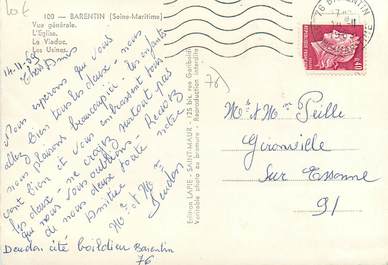 100 — BARENTIN (Seine-Maritime)
Vue générale.
L'Église.
Le Viaduc.
Les Usines.
14.11.69
Chers Amis
Nous espérons que vous
allez bien tous les deux - nous
nous plaisons beaucoup ici - les enfants
vont bien et vous embrassent tous
les deux. ne croyez surtout pas
que nous vous oublions - Recevez
de nous deux toute notre
Amitié
Mr et Mme
Deudon
Deudon cité boieldieu Barentin
76
Edition LAPIE - SAINT-MAUR - 125 bis, rue Garibaldi
Véritable photo au bromure - Reproduction interdite
76 BARENTIN
76
Mr et Mme Peille
Gironville
Sur Essonne
91